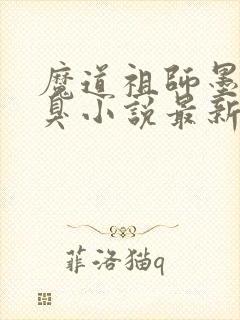 魔道祖師墨
臭小説最新
菲洛猫q